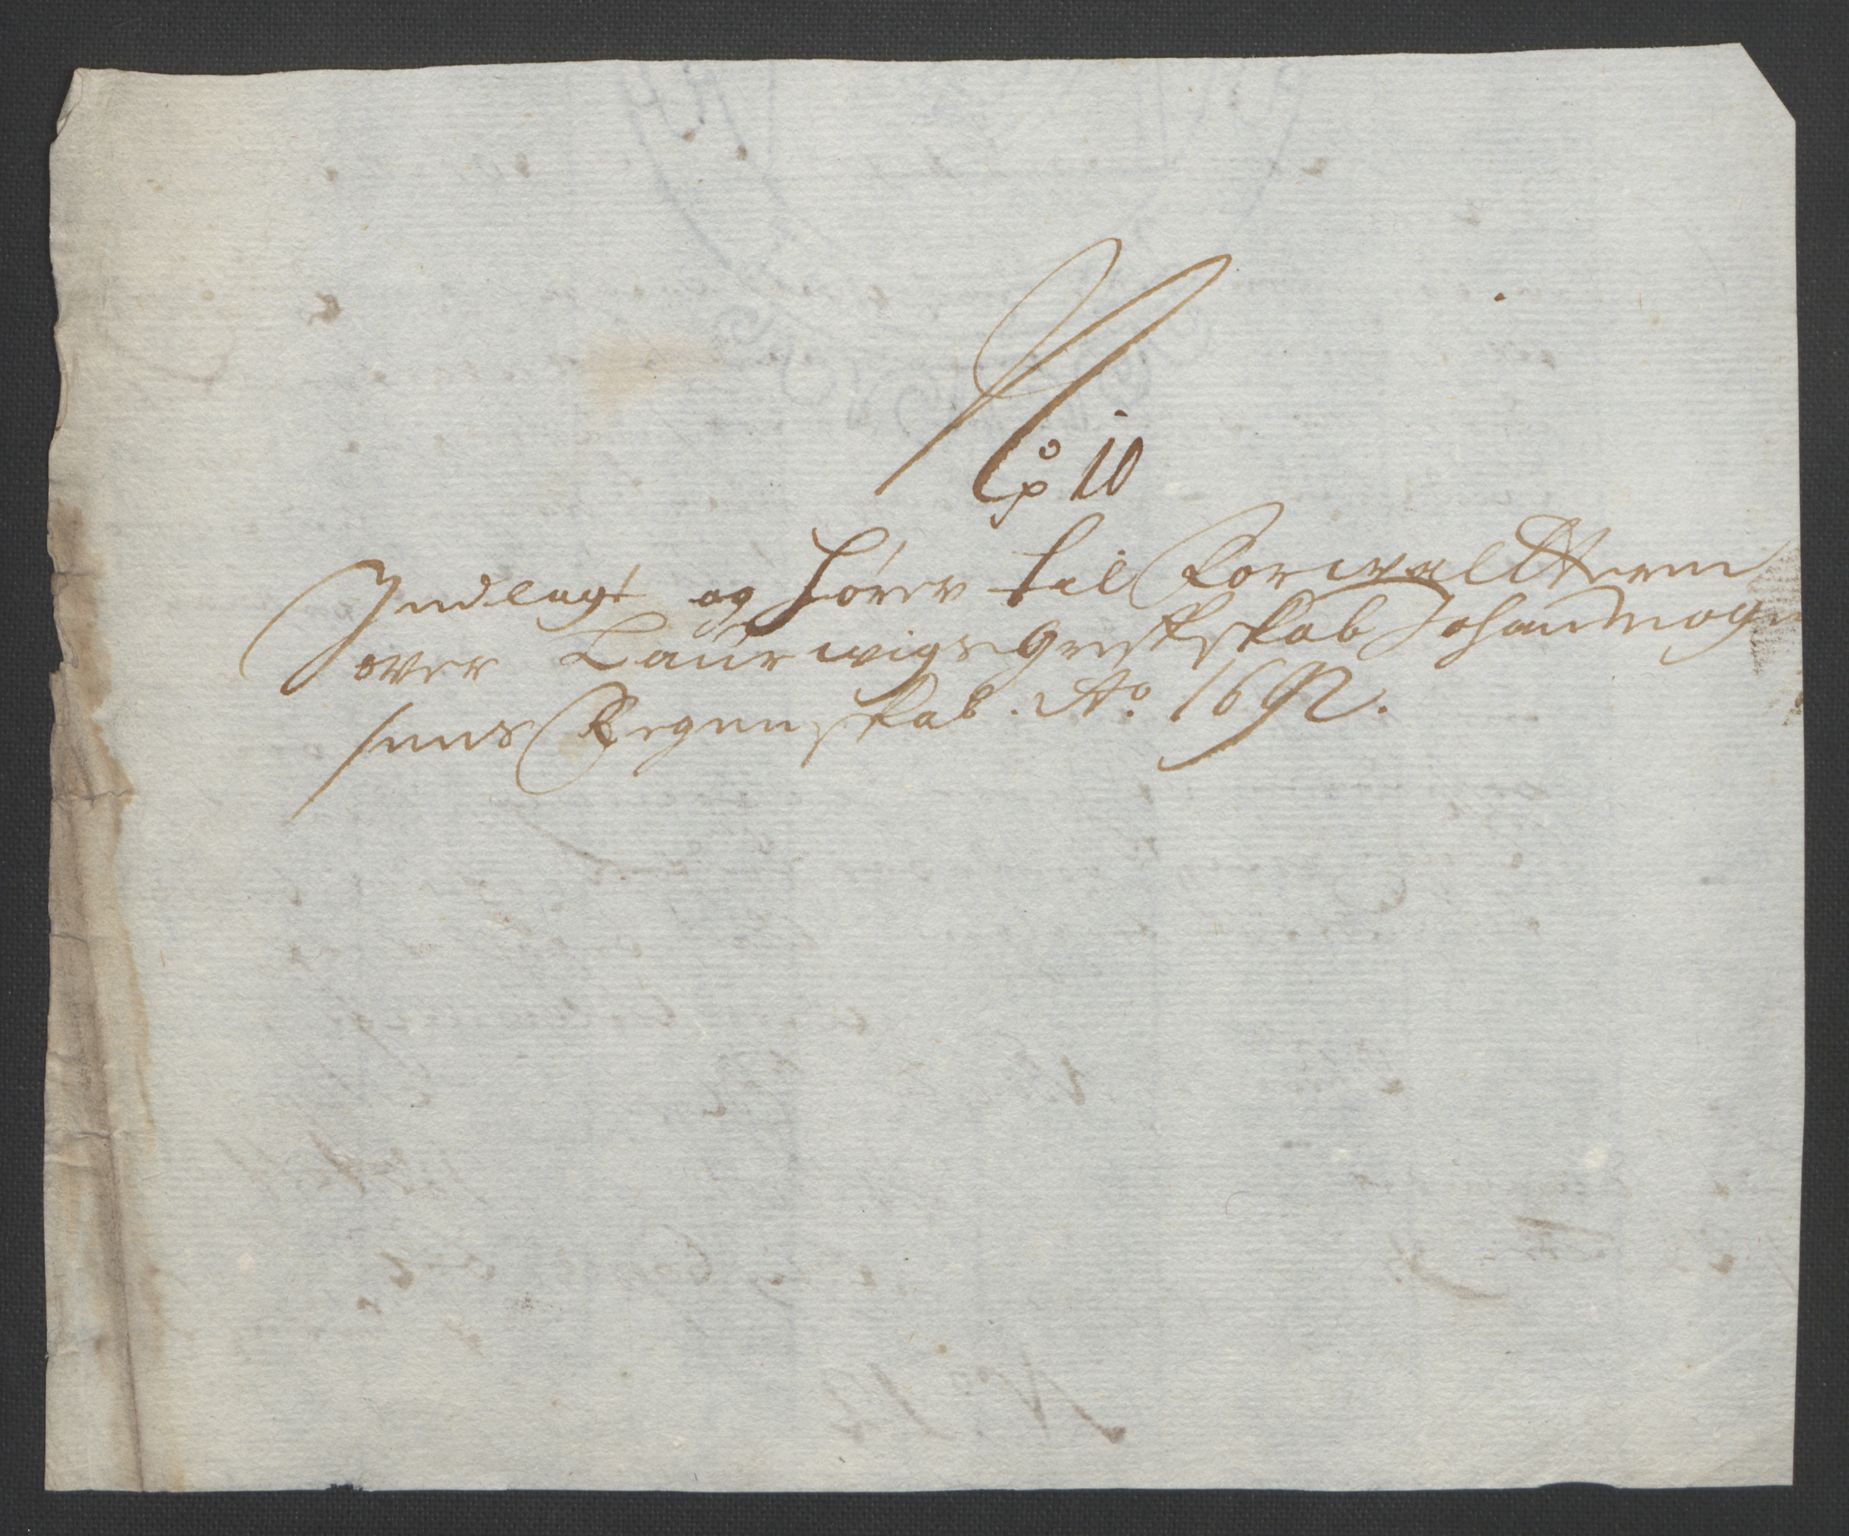 No 10
Indlagt og hörer til Forwaltteren
over Laurwigs Grefskab Johan Mogn
sens Regenskab. Ao. 1692.